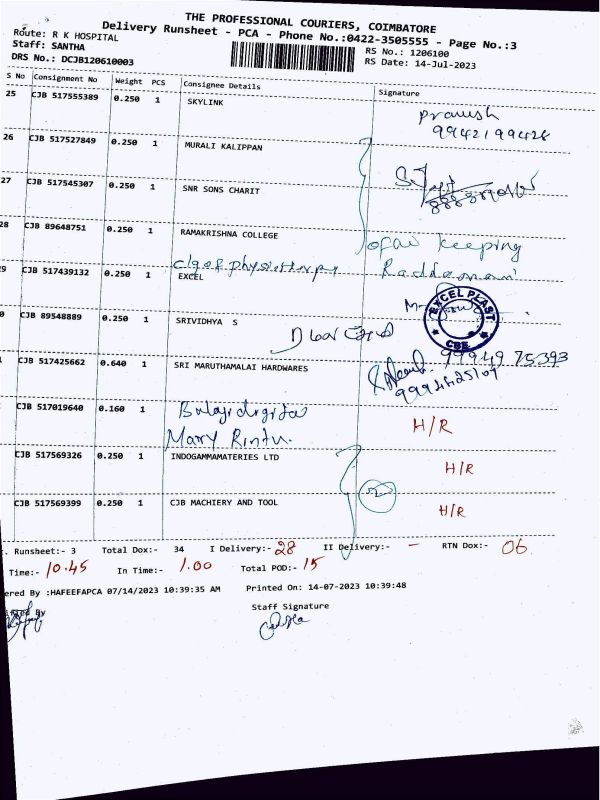 THE PROFESSIONAL COURIERS, COIMBATORE
Delivery Runsheet - PCA - Phone No.:0422-3505555 - Page No.:3
Route: R K HOSPITAL
Staff: SANTHA
RS No.: 1206100
DRS No.: DCJB120610003
RS Date: 14-Jul-2023
S No Consignment No Weight PCS Consignee Details Signature
25 CJB 517555389 0.250 1 SKYLINK
9942199428
26 CJB 517527849 0.250 1 MURALI KALIPPAN
27 CJB 517545307 0.250 1 SNR SONS CHARIT
28 CJB 89648751 0.250 1 RAMAKRISHNA COLLEGE
keeping
clg of physiotherapy
9 CJB 517439132 0.250 1 EXCEL
EXCEL PLAST
CBE.
0 CJB 89548889 0.250 1 SRIVIDHYA S
99949 75393
CJB 517425662 0.640 1 SRI MARUTHAMALAI HARDWARES
CJB 517019640 0.160 1 Balaji digital
H/R
Mary Rintu.
CJB 517569326 0.250 1 INDOGAMMAMATERIES LTD H/R
CJB 517569399 0.250 1 CJB MACHIERY AND TOOL H/R
. Runsheet:- 3 Total Dox:- 34 I Delivery:- 28 II Delivery:- - RTN Dox:- 06.
Time:- 10.45 In Time:- 1.00 Total POD:- 15
ered By :HAFEEFAPCA 07/14/2023 10:39:35 AM Printed On: 14-07-2023 10:39:48
By
Staff Signature